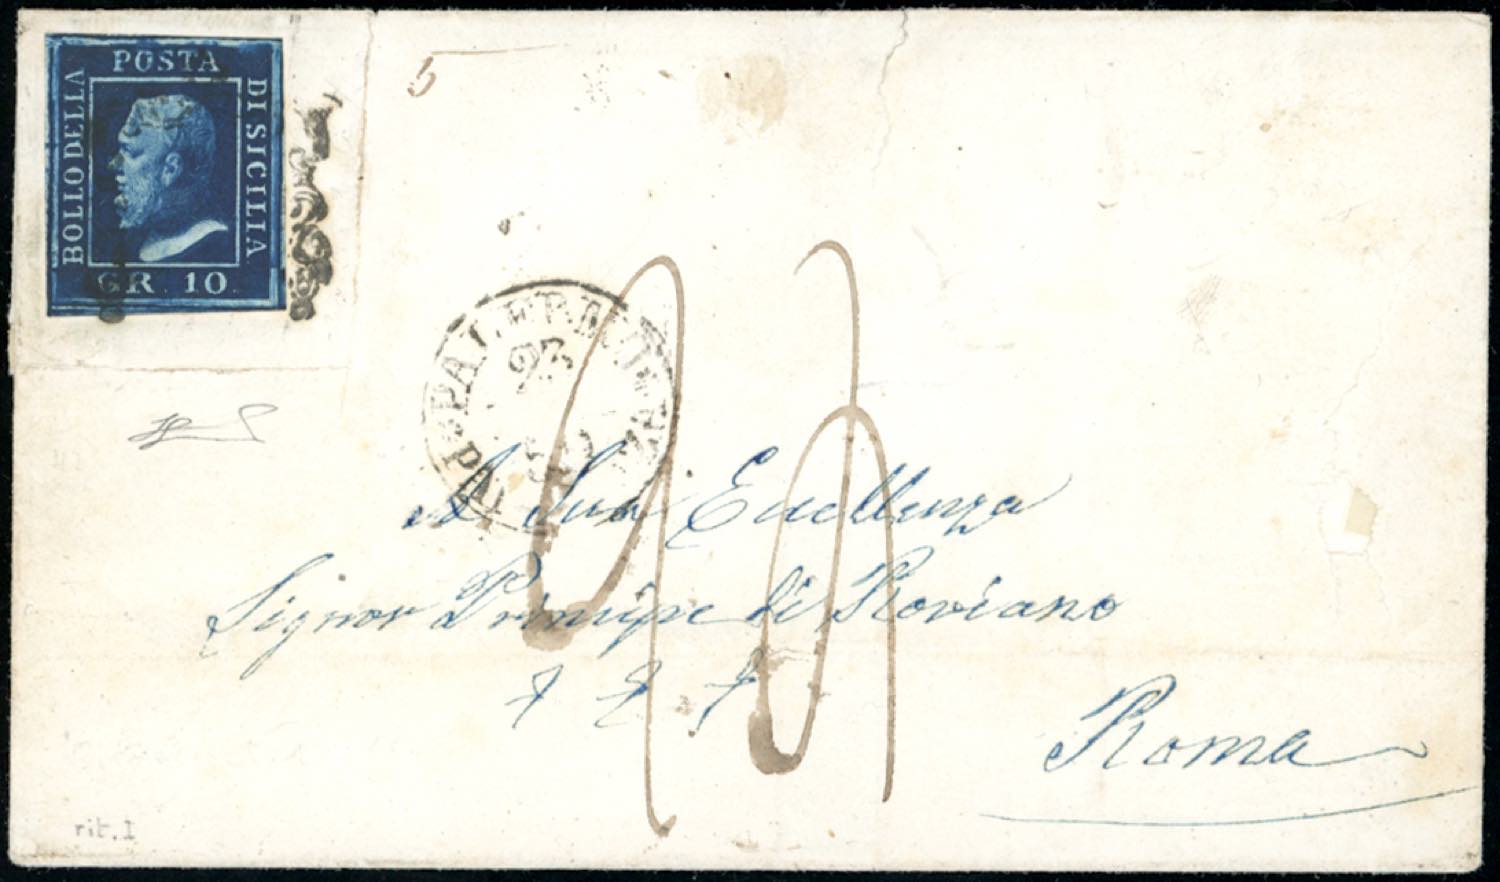 POSTA
BOLLO DELLA
DI SICILIA
GR. 10.
5
PALERMO
23
A Sua Eccellenza
Signor Principe di Roviano
Roma
rit. I